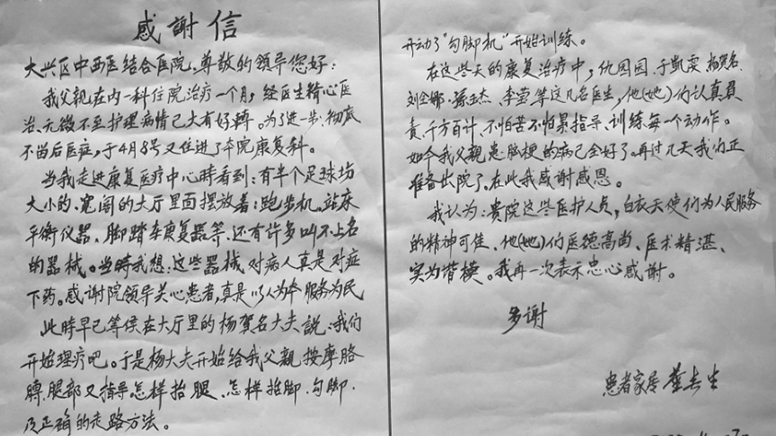 感謝信
大兴区中西医结合医院,尊敬的领导您好:
我父亲在内一科住院治疗一个月,经医生精心医
治、无微不至护理病情已大有好轉。为了进一步、彻底
不留后医症,于4月8号又住進了本院康复科。
当我走進康复医疗中心時看到:有半个足球场
大小的、宽阔的大厅里面摆放着:跑步机、站床
平衡仪器、脚踏车康复器等,还有许多叫不上名
的器械。当時我想:这些器械,对病人真是对症
下药。感谢院领导关心患者,真是以人为本服务为民
此時早已等候在大厅里的杨賀名大夫説:我们
开始理疗吧。于是杨大夫开始给我父親按摩胳
膊、腿部又指導怎样抬腿、怎样抬脚、勾脚、
及正确的走路方法。
开动了"勾脚机"开始訓练。
在这些天的康复治疗中,仇园园、于凯雯、杨賀名、
刘金娜、孫玉杰、李莹等这几名医生,他(她)们认真負
責、千方百计、不怕苦不怕累指导、訓练每一个动作。
如今我父親患脑梗的病已全好了。再过几天我们正
准备出院了。在此我感谢感恩。
我认为:贵院这些医护人员,白衣天使们为人民服务
的精神可佳、他(她)们医德高尚、医术精湛、
实为楷模。我再一次表示忠心感谢。
多谢
患者家属 董春生